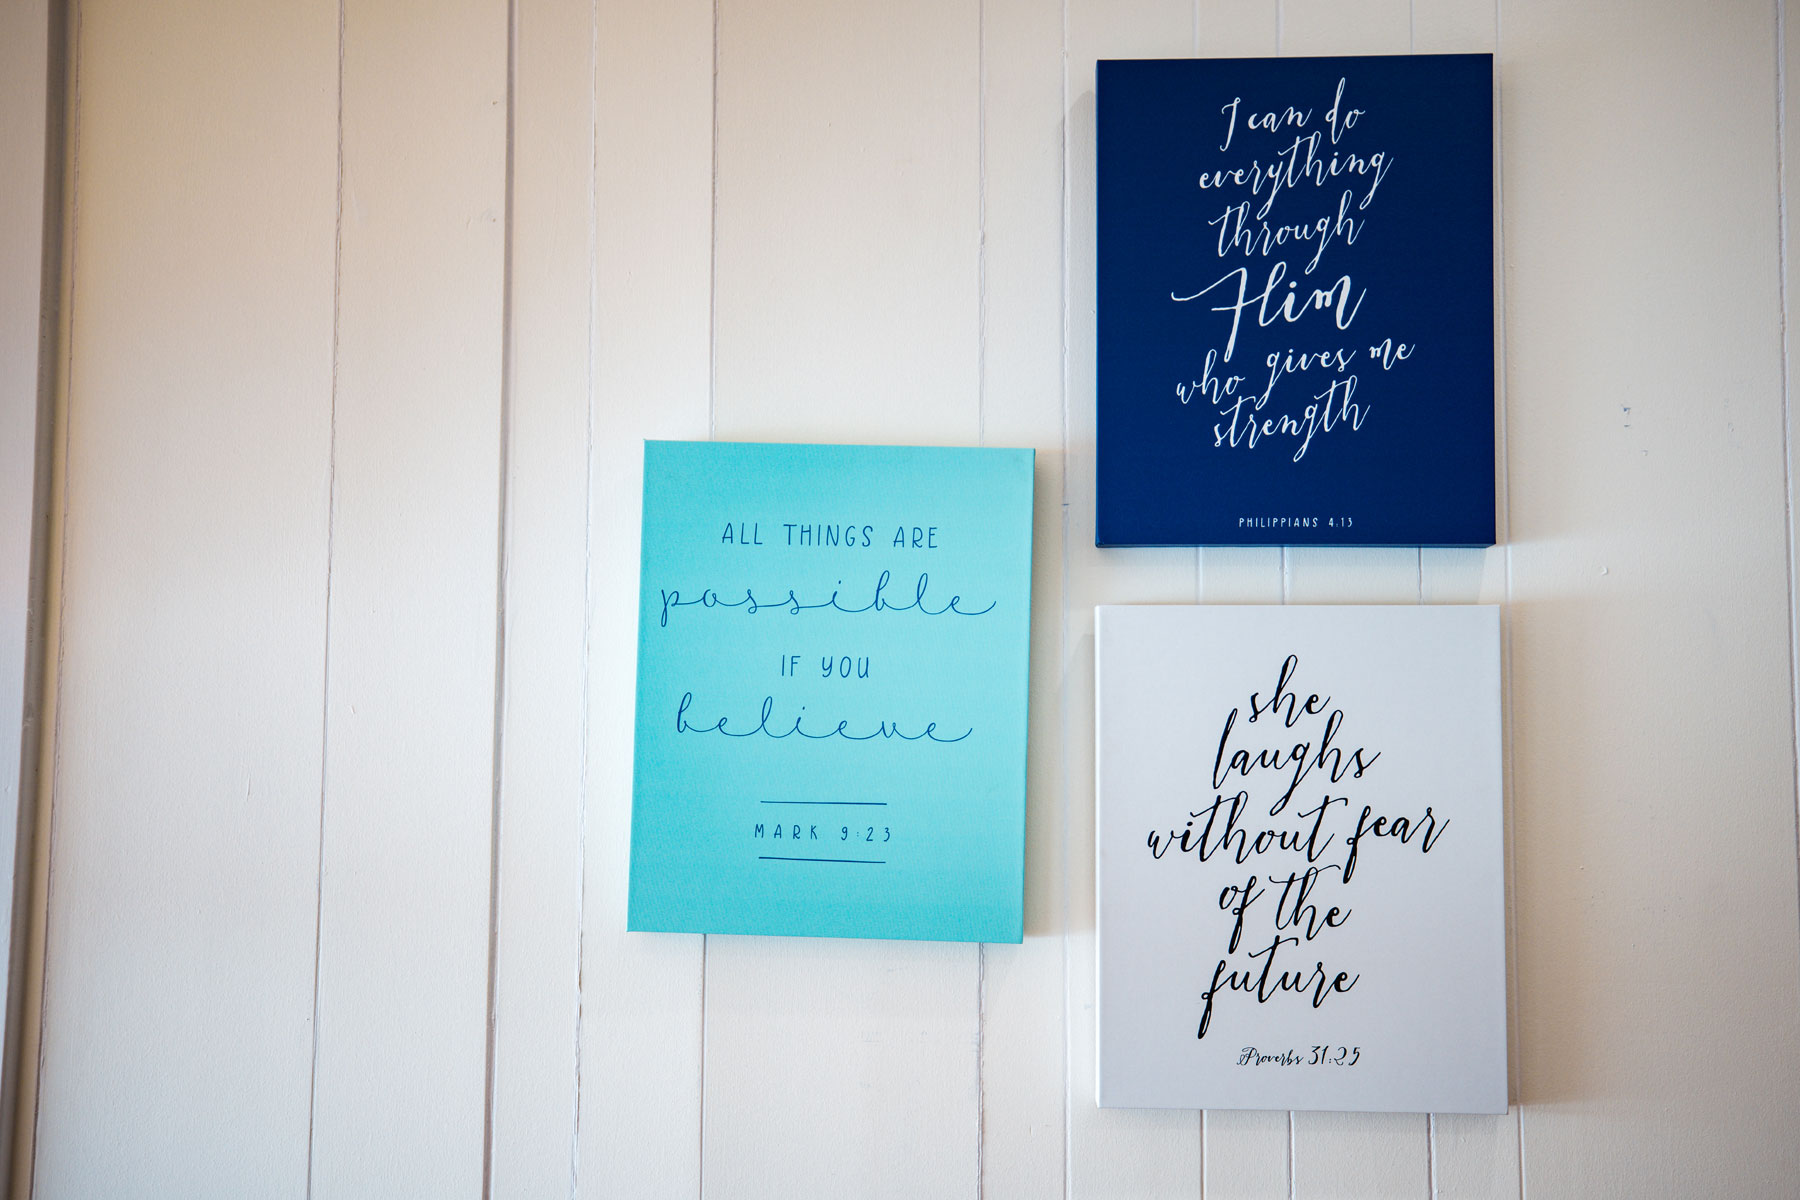 I can do
everything
through
Him
who gives me
strength
PHILIPPIANS 4:13
ALL THINGS ARE
possible
IF YOU
believe
MARK 9:23
she
laughs
without fear
of the
future
Proverbs 31:25